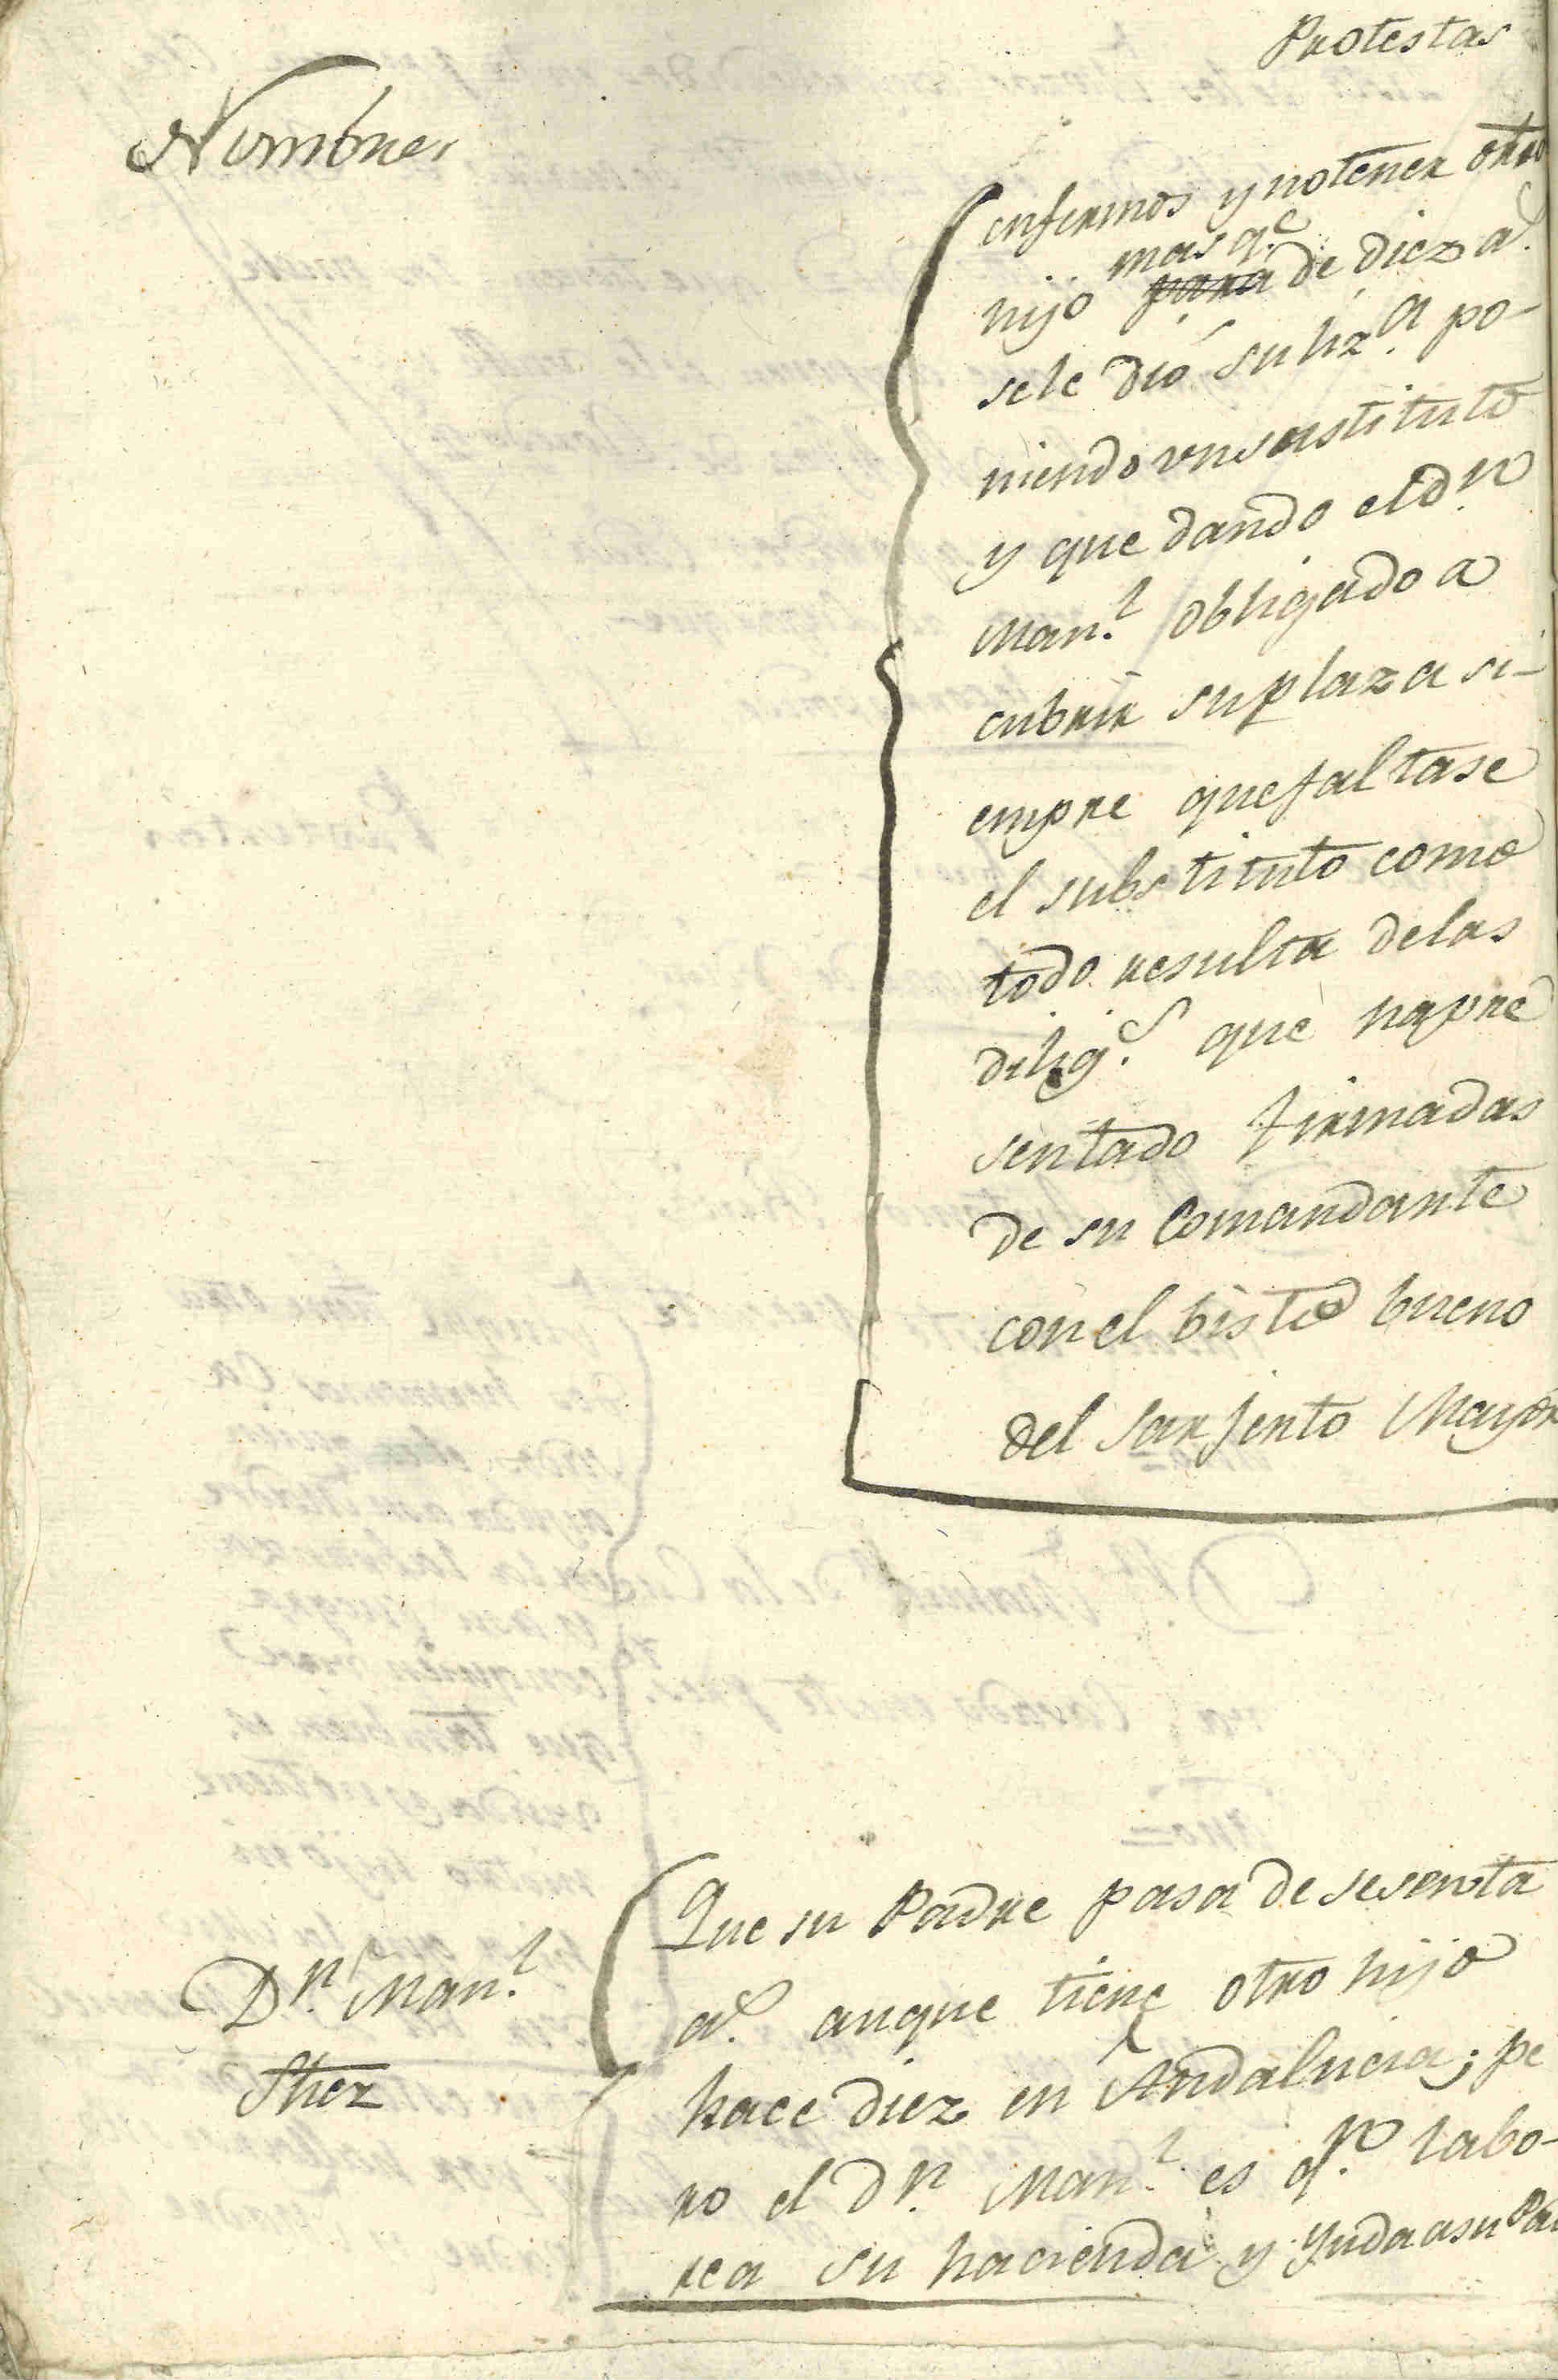 Protestas
Nombres
enfermos y no tener otro
mas q.e
hijo para de diez a.s
se le dió su liz.a po-
niendo un sustituto
y que dando el Dn
Man.l obligado a
cubrir su plaza si-
empre que faltase
el substituto como
todo resulta de las
dilig.s que ha pre
sentado firmadas
de su Comandante
con el bisto bueno
del Sarjento Mayor
Dn. Man.l
Shez
Que su Padre pasa de sesenta
a.s auque tiene otro hijo
hace diez en Andalucia; pe
ro el Dn. Man.l es q.n labo-
rea su hacienda y Yuda a su Pa